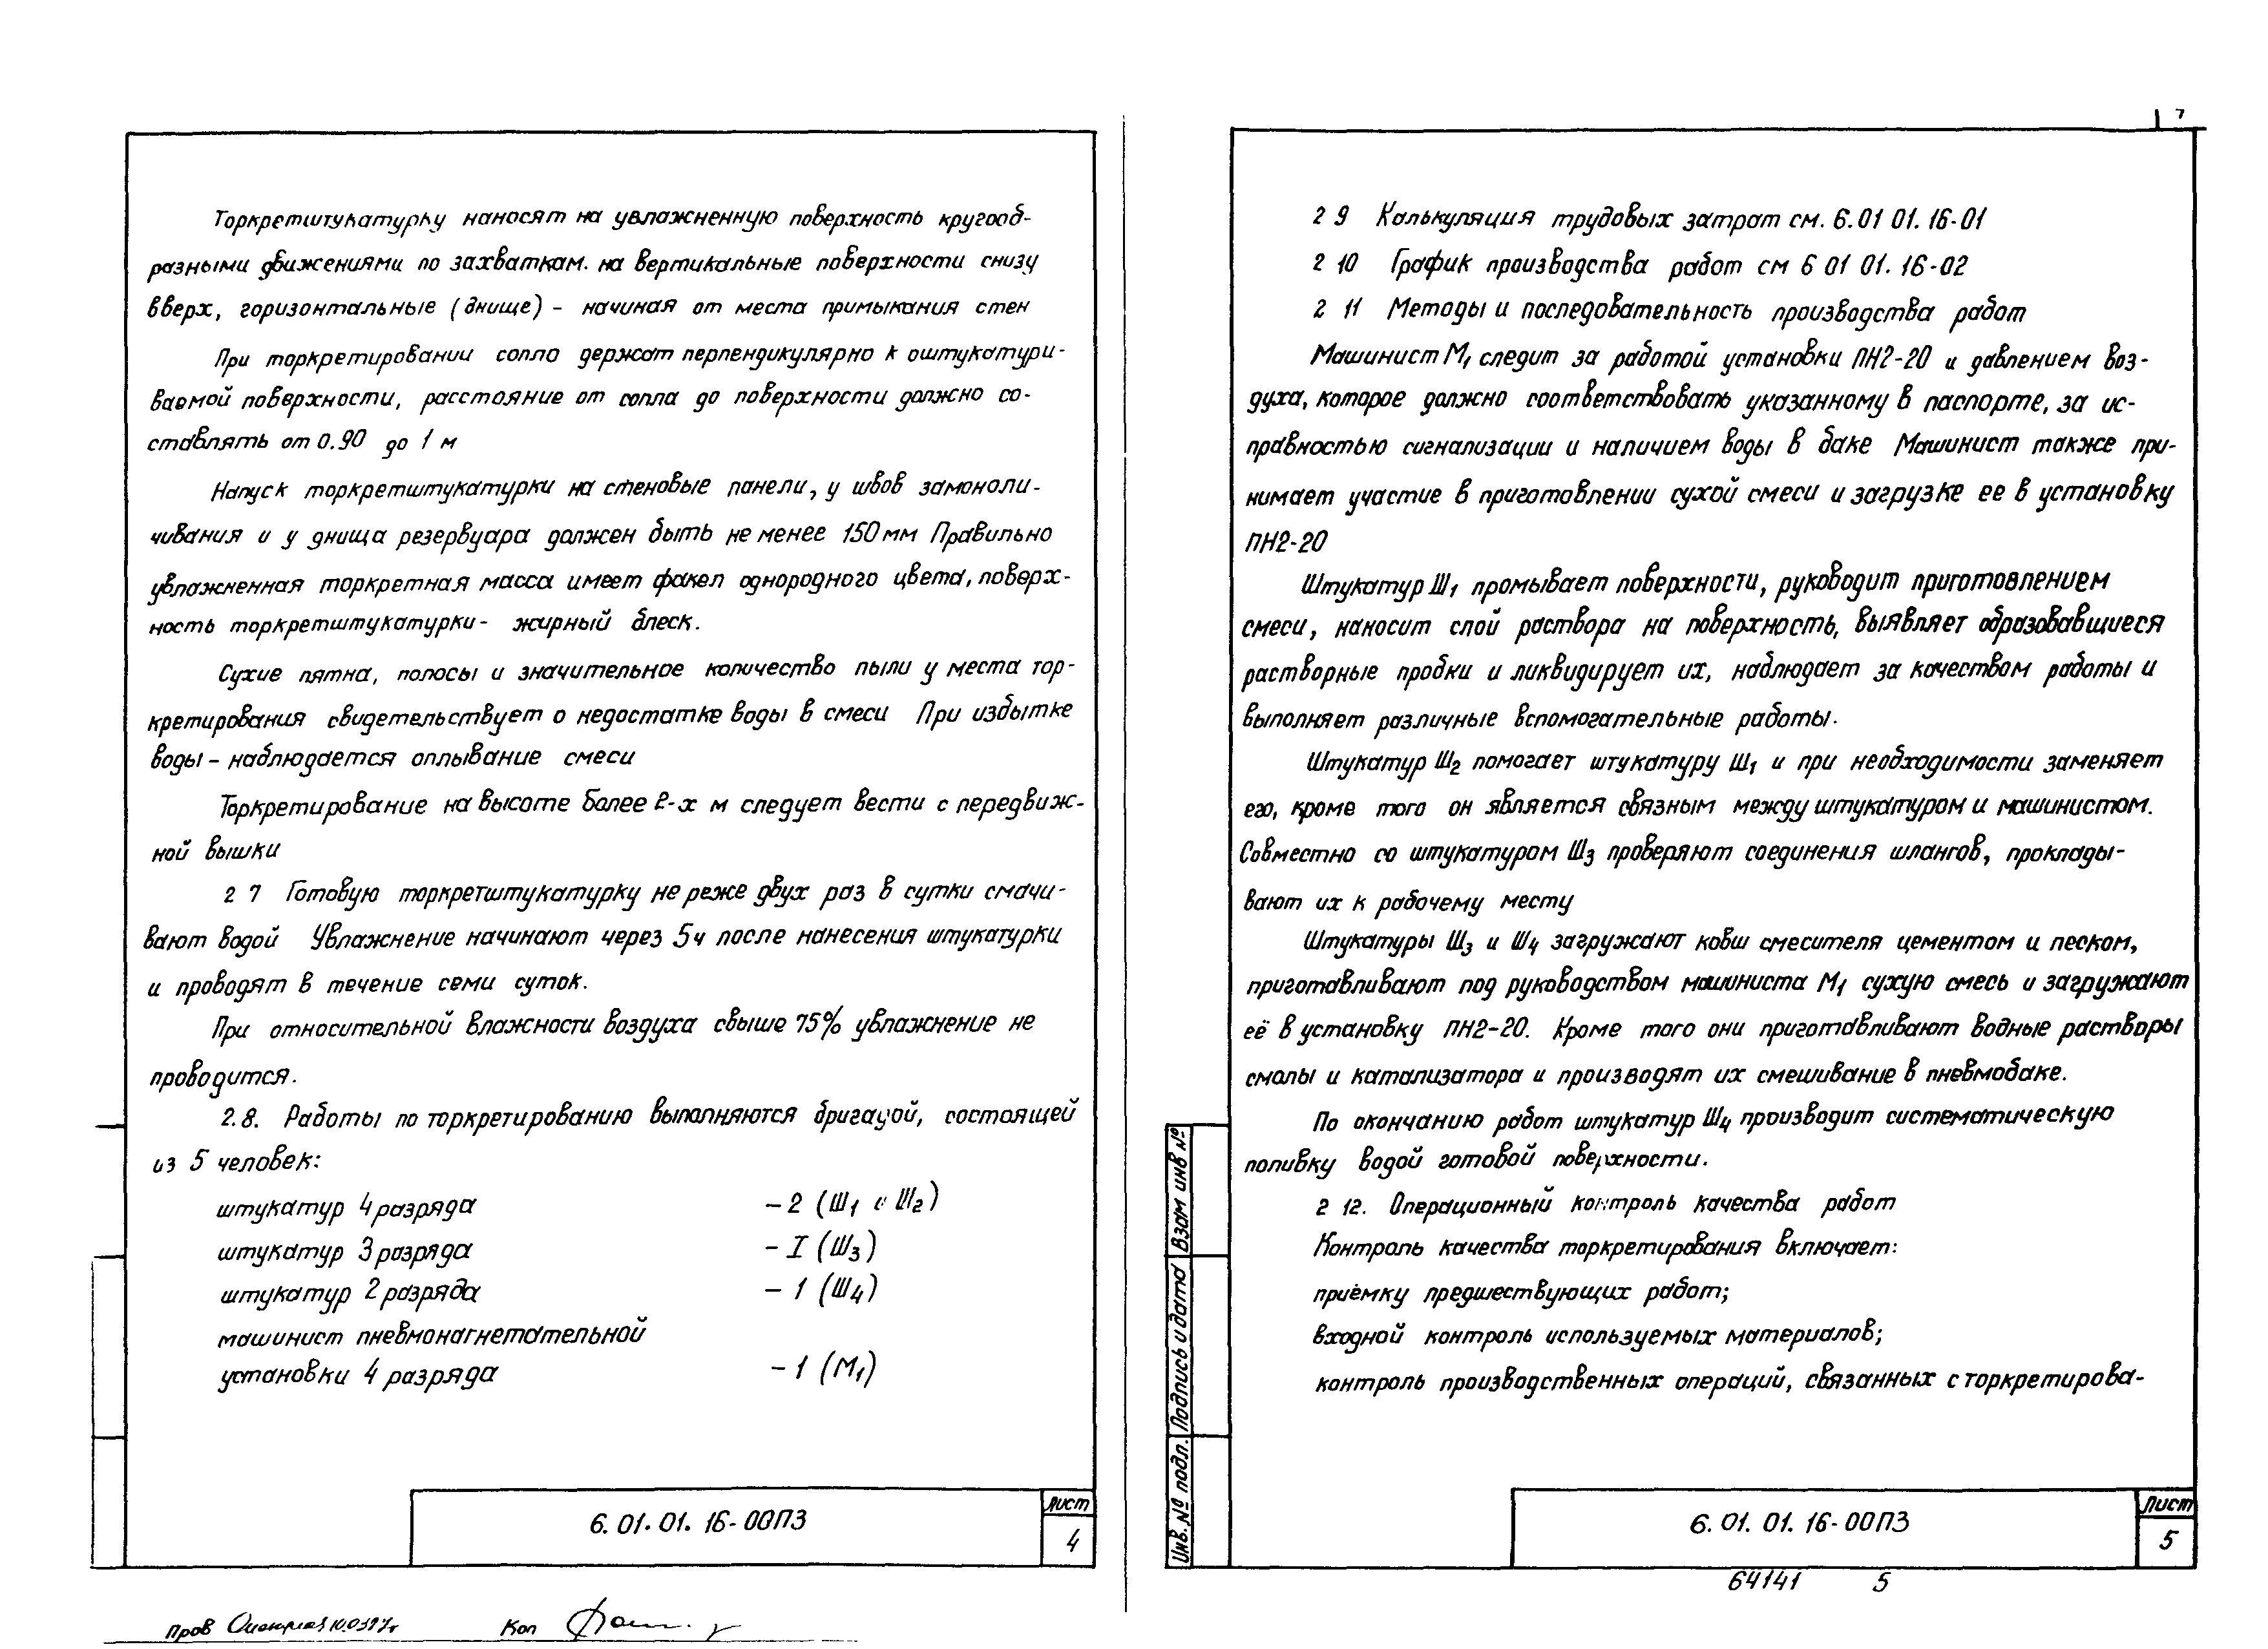 Торкретштукатурку наносят на увлажненную поверхность кругооб-
разными движениями по захваткам. на вертикальные поверхности снизу
вверх, горизонтальные (днище) - начиная от места примыкания стен
При торкретировании сопло держат перпендикулярно к оштукатури-
ваемой поверхности, расстояние от сопла до поверхности должно со-
ставлять от 0.90 до 1 м
Напуск торкретштукатурки на стеновые панели, у швов замоноли-
чивания и у днища резервуара должен быть не менее 150 мм Правильно
увлажненная торкретная масса имеет факел однородного цвета, поверх-
ность торкретштукатурки - жирный блеск.
Сухие пятна, полосы и значительное количество пыли у места тор-
кретирования свидетельствует о недостатке воды в смеси При избытке
воды - наблюдается оплывание смеси
Торкретирование на высоте более 2-х м следует вести с передвиж-
ной вышки
2 7 Готовую торкретштукатурку не реже двух раз в сутки смачи-
вают водой Увлажнение начинают через 5ч после нанесения штукатурки
и проводят в течение семи суток.
При относительной влажности воздуха свыше 75% увлажнение не
проводится.
2.8. Работы по торкретированию выполняются бригадой, состоящей
из 5 человек:
штукатур 4 разряда - 2 (Ш1 и Ш2)
штукатур 3 разряда - I (Ш3)
штукатур 2 разряда - 1 (Ш4)
машинист пневмонагнетательной
установки 4 разряда - 1 (М1)
6. 01. 01. 16-00ПЗ
Лист
4
Пров
Коп
7
2 9 Калькуляция трудовых затрат см. 6.01 01. 16-01
2 10 График производства работ см 6 01 01. 16-02
2 11 Методы и последовательность производства работ
Машинист М1 следит за работой установки ПН2-20 и давлением воз-
духа, которое должно соответствовать указанному в паспорте, за ис-
правностью сигнализации и наличием воды в баке Машинист также при-
нимает участие в приготовлении сухой смеси и загрузке ее в установку
ПН2-20
Штукатур Ш1 промывает поверхности, руководит приготовлением
смеси, наносит слой раствора на поверхность, выявляет образовавшиеся
растворные пробки и ликвидирует их, наблюдает за качеством работы и
выполняет различные вспомогательные работы.
Штукатур Ш2 помогает штукатуру Ш1 и при необходимости заменяет
его, кроме того он является связным между штукатуром и машинистом.
Совместно со штукатуром Ш3 проверяют соединения шлангов, проклады-
вают их к рабочему месту
Штукатуры Ш3 и Ш4 загружают ковш смесителя цементом и песком,
приготавливают под руководством машиниста М1 сухую смесь и загружают
её в установку ПН2-20. Кроме того они приготавливают водные растворы
смолы и катализатора и производят их смешивание в пневмобаке.
По окончанию работ штукатур Ш4 производит систематическую
поливку водой готовой поверхности.
2 12. Операционный контроль качества работ
Контроль качества торкретирования включает:
приёмку предшествующих работ;
входной контроль используемых материалов;
контроль производственных операций, связанных с торкретирова-
Инв. № подл.
Подпись и дата
Взам инв №
6. 01. 01. 16-00ПЗ
Лист
5
64141 5